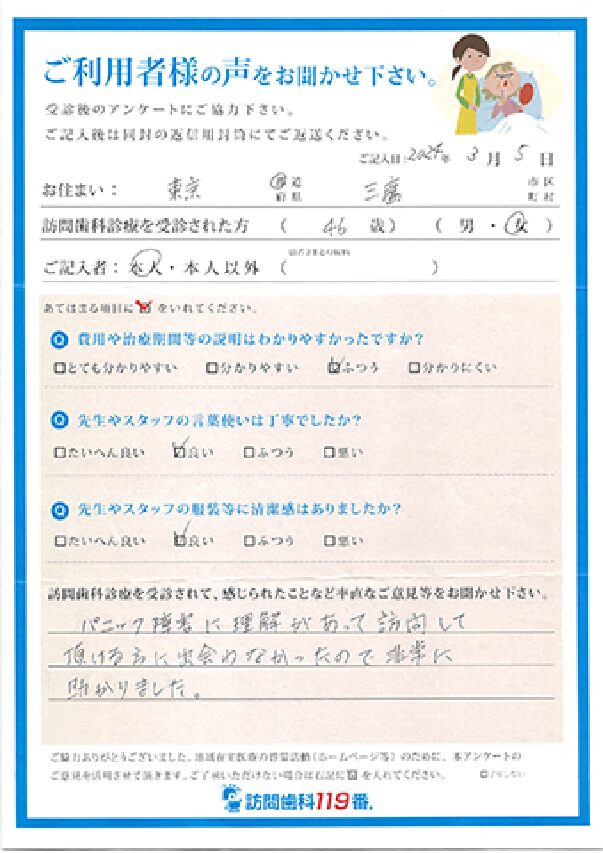 ご利用者様の声をお聞かせ下さい。
受診後のアンケートにご協力下さい。
ご記入後は同封の返信用封筒にてご返送ください。
ご記入日:2024年 3月 5日
お住まい: 東京 都道府県 三鷹 市区町村
訪問歯科診療を受診された方 ( 46 歳) ( 男 ・ 女 )
ご記入者: 本人・本人以外 ( )
あてはまる項目に☑をいれてください。
Q 費用や治療期間等の説明はわかりやすかったですか?
□とても分かりやすい □分かりやすい ☑ふつう □分かりにくい
Q 先生やスタッフの言葉使いは丁寧でしたか?
□たいへん良い ☑良い □ふつう □悪い
Q 先生やスタッフの服装等に清潔感はありましたか?
□たいへん良い ☑良い □ふつう □悪い
訪問歯科診療を受診されて、感じられたことなど率直なご意見等をお聞かせ下さい。
パニック障害に理解があって訪問して
頂ける方に出会めなかったので非常に
助かりました。
ご協力ありがとうございました。地域在宅医療の啓蒙活動(ホームページ等)のために、本アンケートの
ご意見を活用させて頂きます。ご了承いただけない場合は右記に☑を入れてください。
訪問歯科119番.